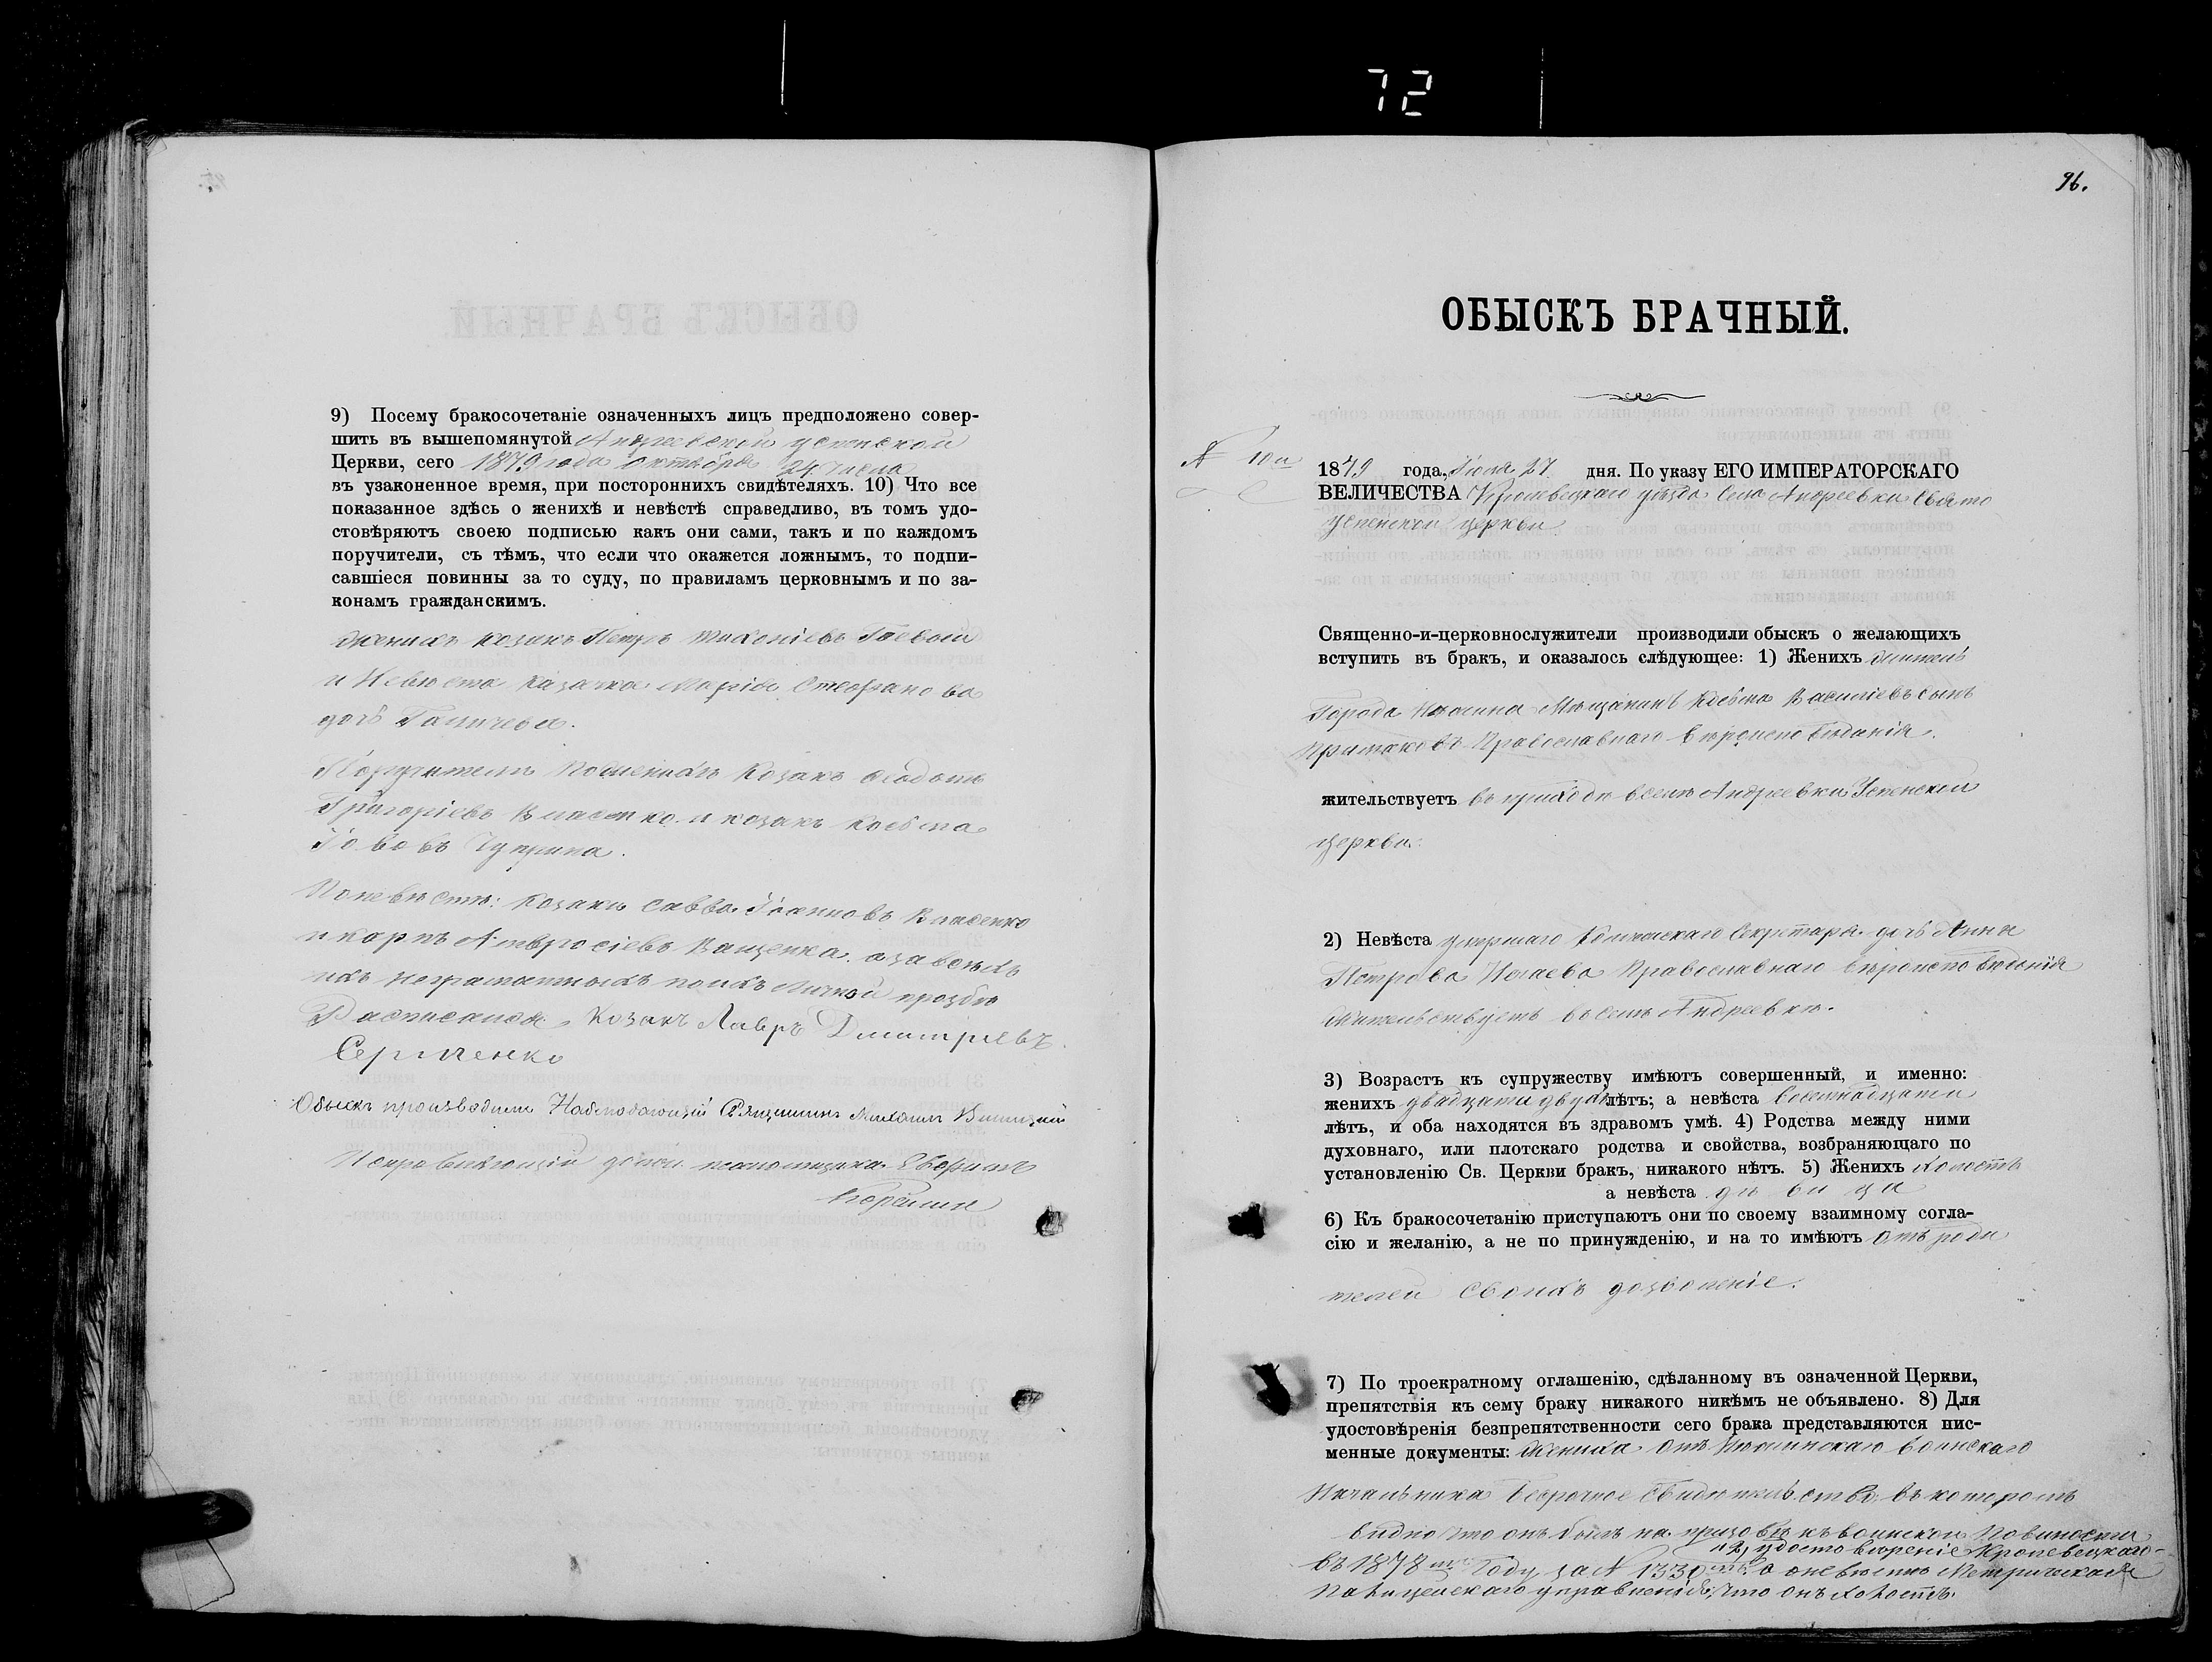 72
9) Посему бракосочетаніе означенныхъ лицъ предположено совер-
шить въ вышепомянутой Андреевской успенской
Церкви, сего 1879 года октября 24 числа
въ узаконенное время, при постороннихъ свидѣтеляхъ. 10) Что все
показанное здѣсь о женихѣ и невѣстѣ справедливо, въ томъ удо-
стовѣряютъ своею подписью какъ они сами, такъ и по каждомъ
поручители, съ тѣмъ, что если что окажется ложнымъ, то подпи-
савшіеся повинны за то суду, по правиламъ церковнымъ и по за-
конамъ гражданскимъ.
Женихъ козакъ Петръ
и Невѣста казачка Марія Стефанова
дочь
Поручители по женихѣ Козакъ Ѳеодотъ
Григоріевъ Власенко и козакъ Косьма
Іововъ Чуприна.
По невѣстѣ: Козаки Савва Іоанновъ Власенко
и Карпъ Амвросіевъ Ващенко а за всѣхъ
ихъ неграматныхъ по ихъ личной прозбѣ
Росписался Козакъ Лавръ Дмитріевъ
Сергіенко
Обыскъ производили Наблюдающій Священникъ Михаилъ
Исправляющій должн. псаломщика
96.
ОБЫСКЪ БРАЧНЫЙ.
№ 10й
1879 года, Іюля 27 дня. По указу ЕГО ИМПЕРАТОРСКАГО
ВЕЛИЧЕСТВА Кролевецкаго уѣзда Села Андреевки Свято
Успенской церкви
Священно-и-церковнослужители производили обыскъ о желающихъ
вступить въ бракъ, и оказалось слѣдующее: 1) Женихъ житель
Города Нѣжина Мѣщанинъ Косьма Василіевъ сынъ
Примаковъ Православнаго вѣроисповѣданія.
жительствуетъ въ приходѣ въ селѣ Андреевки Успенской
церкви.
2) Невѣста умершаго Колежскаго Секретаря дочь Анна
Петрова Исаева Православнаго вѣроисповѣданія
жительствуетъ въ селѣ Андреевкѣ.
3) Возрастъ къ супружеству имѣютъ совершенный, и именно:
женихъ двадцати двухъ лѣтъ; а невѣста восемнадцати
лѣтъ, и оба находятся въ здравомъ умѣ. 4) Родства между ними
духовнаго, или плотскаго родства и свойства, возбраняющаго по
установленію Св. Церкви бракъ, никакого нѣтъ. 5) Женихъ холостъ
а невѣста дѣвица
6) Къ бракосочетанію приступаютъ они по своему взаимному согла-
сію и желанію, а не по принужденію, и на то имѣютъ отъ роди
телей своихъ дозволеніе.
7) По троекратному оглашенію, сдѣланному въ означенной Церкви,
препятствія къ сему браку никакого никѣмъ не объявлено. 8) Для
удостовѣренія безпрепятственности сего брака представляются пис-
менные документы: Жениха отъ Нѣжинскаго воинскаго
Начальника безсрочное свидѣтельство въ которомъ
видно что онъ былъ на призовѣ къ воинской Повиности
и 2, удостовѣреніе Кролевецкаго
въ 1878 году за № 1330 о невѣстѣ Метрическая
Полицейскаго управленія, что онъ холостъ.